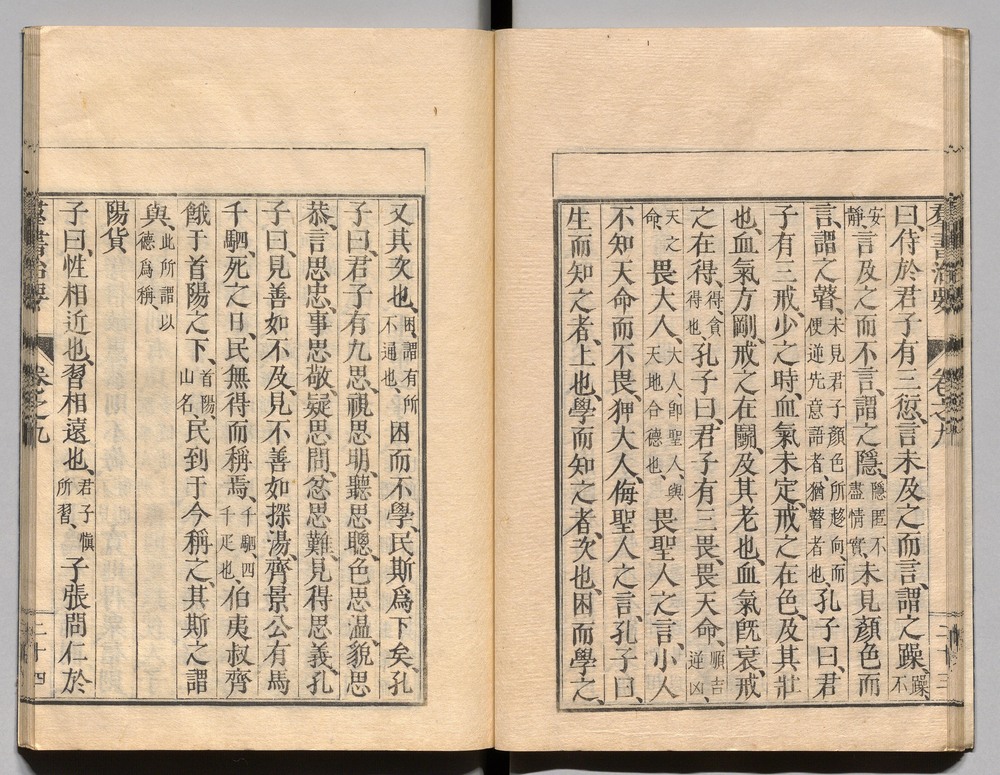 群書治要 卷之九 二十三
曰、侍於君子有三愆、言未及之而言、謂之躁、躁、不
安靜、言及之而不言、謂之隱、隱匿不盡情實、未見顏色而
言、謂之瞽、未見君子顏色所趍向、而便逆先意語者、猶瞽者也、孔子曰、君
子有三戒、少之時、血氣未定、戒之在色、及其壯
也、血氣方剛、戒之在鬭、及其老也、血氣旣衰、戒
之在得、得、貪得也、孔子曰、君子有三畏、畏天命、順吉逆凶、
天之命、畏大人、大人、卽聖人、與天地合德也、畏聖人之言、小人
不知天命而不畏、狎大人、侮聖人之言、孔子曰、
生而知之者、上也、學而知之者、次也、困而學之、
又其次也、困謂有所不通也、困而不學、民斯爲下矣、孔
子曰、君子有九思、視思明、聽思聰、色思温、貌思
恭、言思忠、事思敬、疑思問、忿思難、見得思義、孔
子曰、見善如不及、見不善如探湯、齊景公有馬
千駟、死之日、民無得而稱焉、千駟、四千疋也、伯夷叔齊
餓于首陽之下、首陽、山名、民到于今稱之、其斯之謂
與、此所謂以德爲稱、
陽貨
子曰、性相近也、習相遠也、君子愼所習、子張問仁於
群書治要 卷之九 二十四